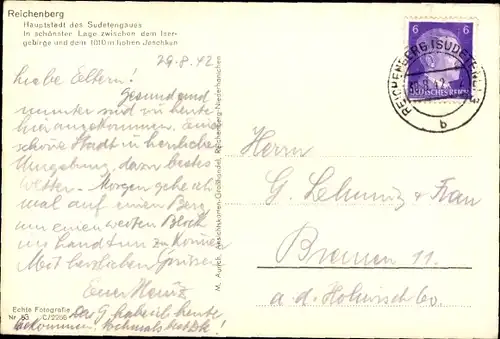 Reichenberg
Hauptstadt des Sudetengaues
In schönster Lage zwischen dem Iser-
gebirge und dem 1010 m hohen Jeschken
29.8.42
Liebe Eltern!
Gesund und
munter sind wir heute
hier angekommen. Eine
schöne Stadt in herrlicher
Umgebung, dazu bestes
Wetter. Morgen gehe ich
mal auf einen Berg
um einen weiten Blick
ins Land tun zu können.
Mit herzlichen Grüssen
Euer Heinz
Das G. habe ich heute
bekommen. Nochmals
Echte Fotografie
Nr. 53 C/2256
M. Aurich, Ansichtskarten-Großhandel, Reichenberg-Niederhanichen
6
6
DEUTSCHES REICH
REICHENBERG (SUDETENGAU)
b
Herrn
G. Lehmitz & Frau
Bremen 11.
a. d.